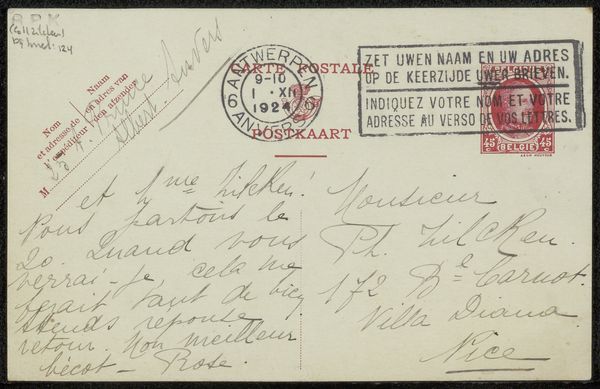 B.P.K
CARTE POSTALE
POSTKAART
Nom
et adresse de
l'expéditeur
Naam
en adres van
den afzender
M
23 A.
Albert Anvers
ANTWERPEN
9-10
1 XII
1924
6 6
ANVERS
ZET UWEN NAAM EN UW ADRES
OP DE KEERZIJDE UWER BRIEVEN.
INDIQUEZ VOTRE NOM ET VOTRE
ADRESSE AU VERSO DE VOS LETTRES.
45c BELGIE 45c
et Mme Zilcken!
Nous partons le
20. Quand vous
verrai-je, cela me
ferait tant de bien
attends reponse
retour. Mon meilleur
bécot - Rose.
Monsieur
Ph. Zilcken.
172 Bd Carnot.
Villa Diana
Nice